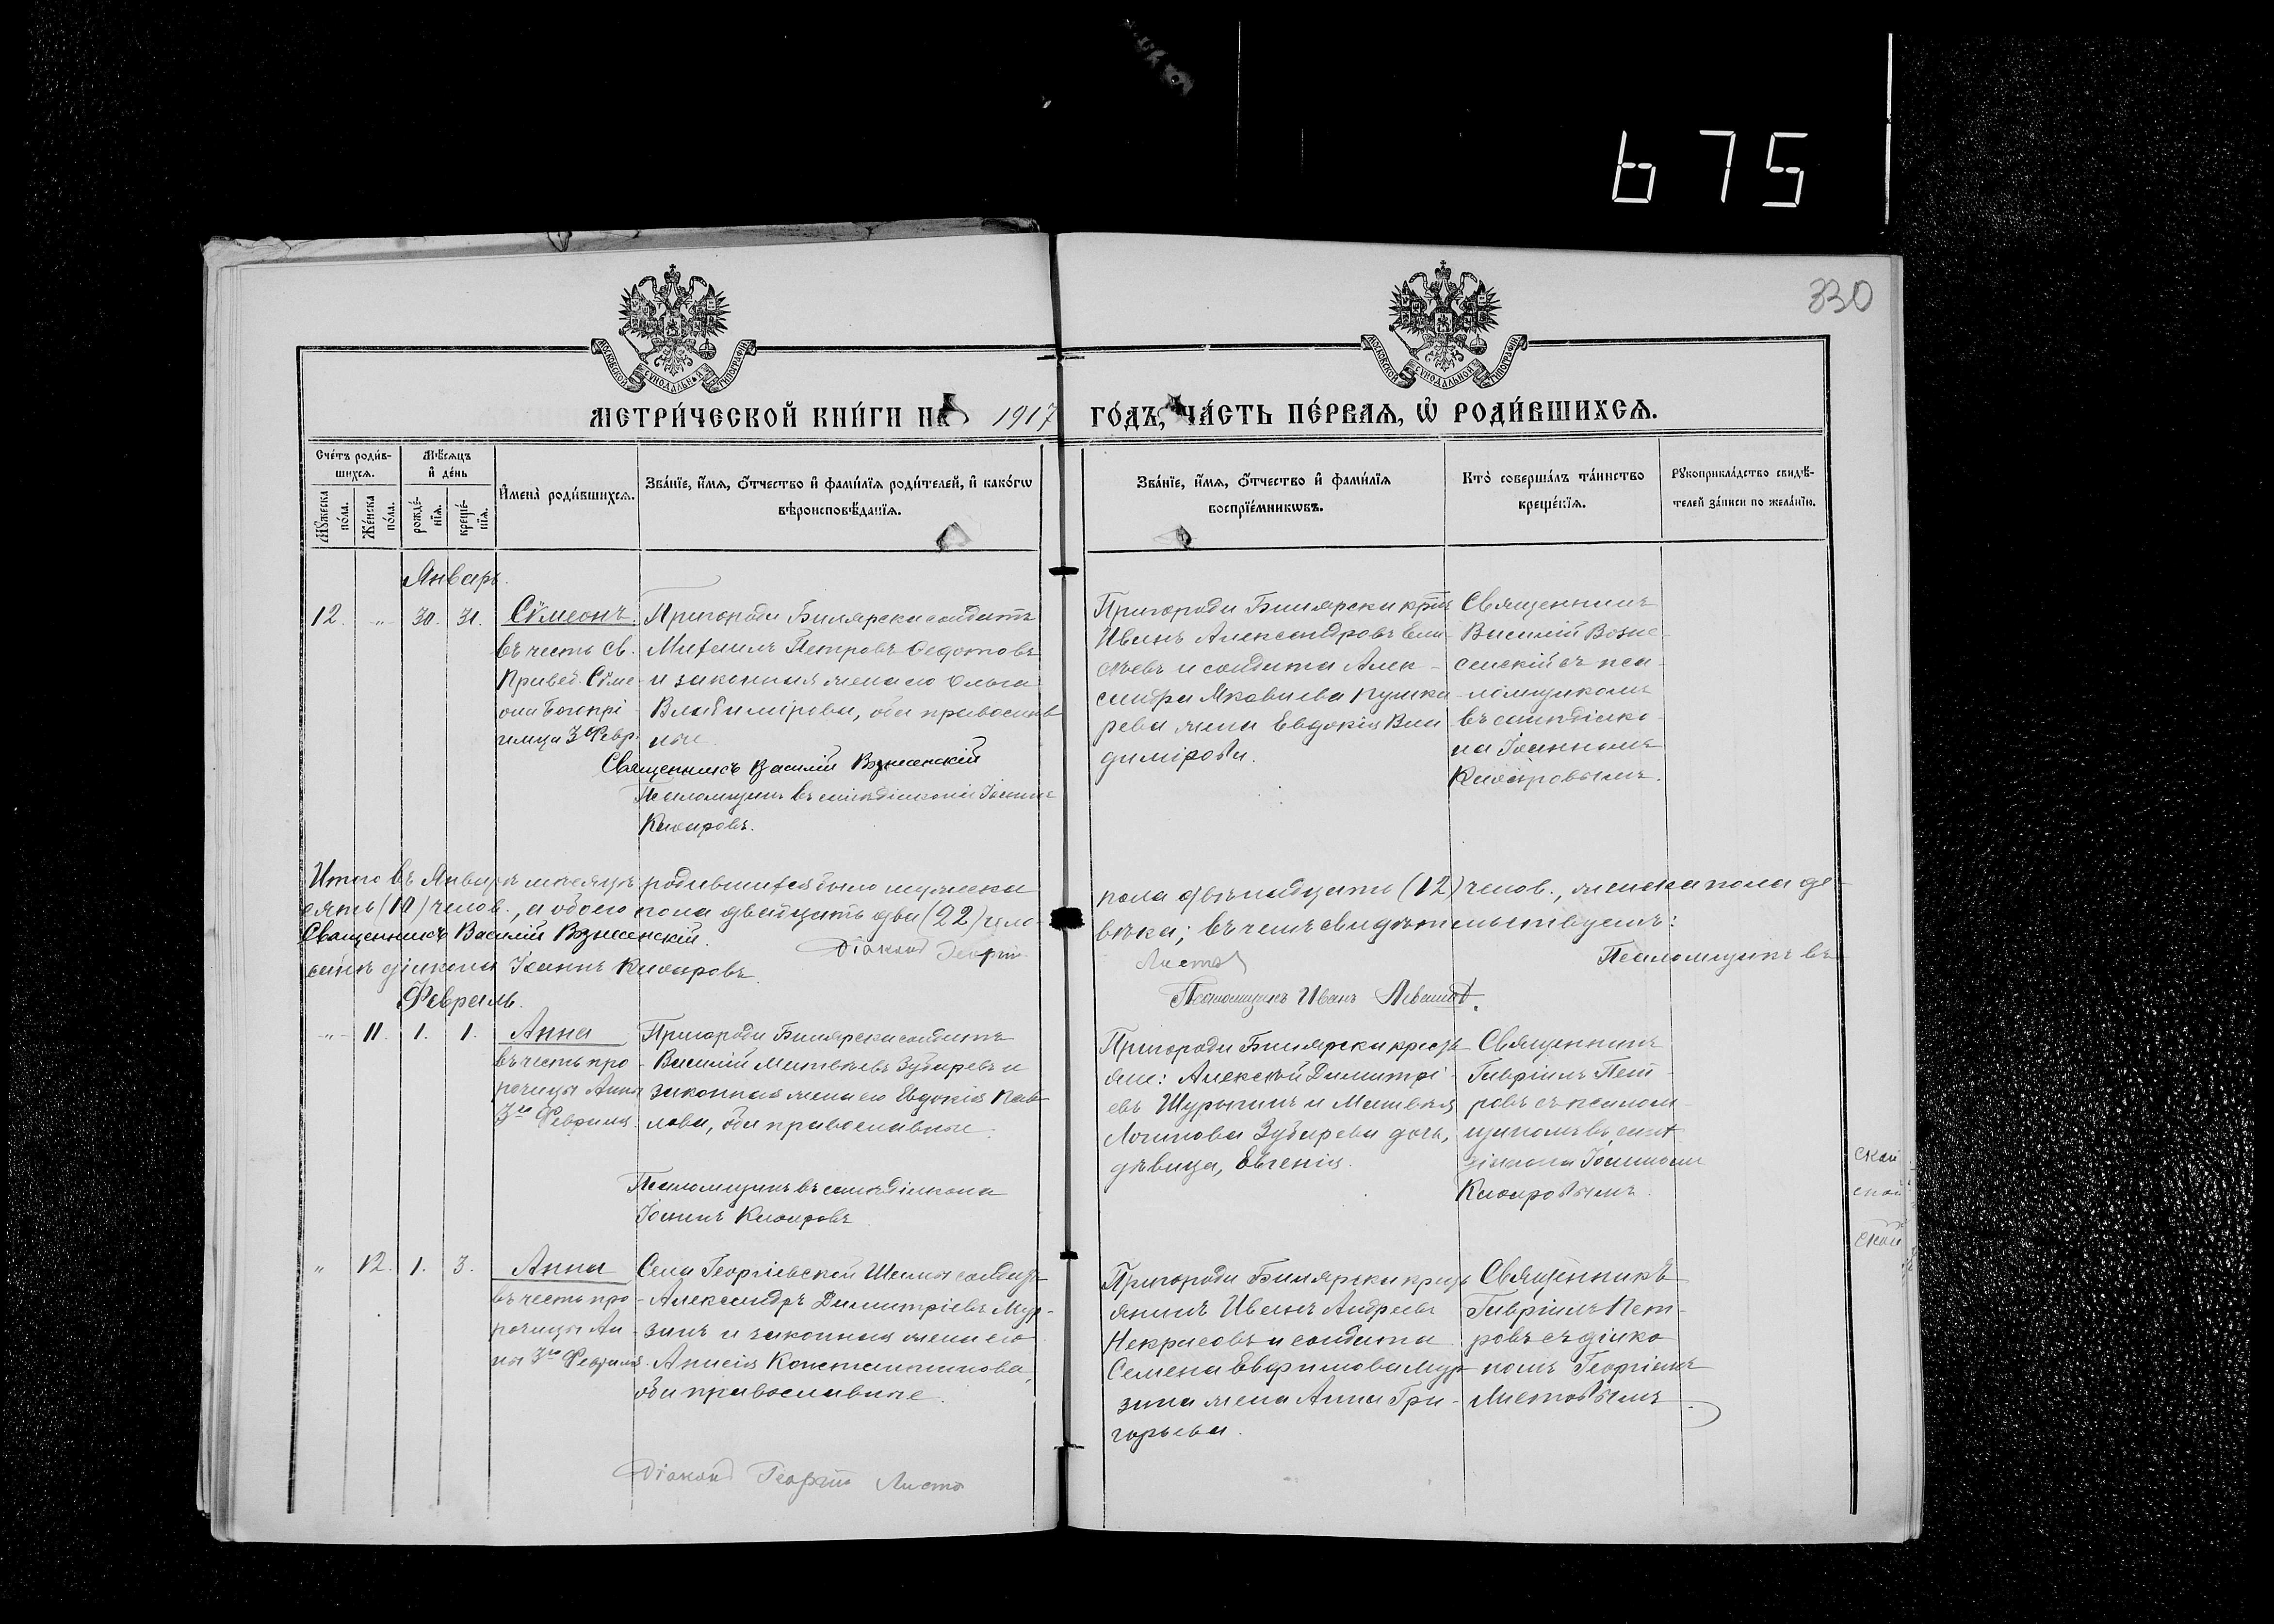 675
330
МОСКОВСКОЙ СѴНОДАЛЬНОЙ ТИПОГРАФІИ
МОСКОВСКОЙ СѴНОДАЛЬНОЙ ТИПОГРАФІИ
МЕТРИ́ЧЕСКОЙ КНИ́ГИ НА 1917 ГО́ДЪ, ЧА́СТЬ ПЕ́РВАѦ, Ѡ҆ РОДИ́ВШИХСѦ.
Сче́тъ роди́в-
шихсѧ.
Мѣ́сѧцъ
и҆ де́нь
Мꙋ́жеска
по́ла.
Же́нска
по́ла.
рожде́-
нїѧ.
креще́-
нїѧ.
И҆мена̀ роди́вшихсѧ.
Зва́нїе, и҆́мѧ, ѻ҆́тчество и҆ фами́лїѧ роди́телей, и҆ како́гѡ
вѣроисповѣ́данїѧ.
Зва́нїе, и҆́мѧ, ѻ҆́тчество и҆ фами́лїѧ
воспрїе́мникѡвъ.
Кто̀ соверша́лъ та́инство
креще́нїѧ.
Рꙋкоприкла́дство свидѣ́-
телей за́писи по жела́нїю.
Январь.
12. " 30. 31.
Сѵмеонъ
въ честь св.
Правед. Сѵме-
она Богопрі-
имца 3го Февр.
Пригорода Билярска солдатъ
Михаилъ Петровъ Федотовъ
и законная жена его Ольга
Владимірова, оба православ
ные.
Священникъ Василій Вознесенскій
Псаломщикъ въ санѣ діакона Іоаннъ
Пригорода Билярска крест
Иванъ Александровъ Ели-
сѣевъ и солдата Алек-
сандра Яковлева Пушка-
рева жена Евдокія Вла
димірова.
Священникъ
Василій Возне-
сенскій съ пса-
ломщикомъ
въ санѣ діако-
на Іоанномъ
Итого въ Январѣ мѣсяцѣ родившихся было мужеска пола двѣнадцать (12) челов., женска пола де-
сять (10) челов., а обоего пола двадцать два (22) чело-вѣка; въ чемъ свидѣтельствуемъ:
Священникъ Василій Вознесенскій. Діаконъ Георгій Листовъ Псаломщикъ въ
санѣ діакона Іоаннъ
Псаломщикъ Иванъ
Февраль.
" 11. 1. 1.
Анна
въ честь про-
рочицы Анны
3го Февраля.
Пригорода Билярска солдатъ
Василій Матвѣевъ Зубаревъ и
законная жена его Евдокія Пав-
лова, оба православные.
Псаломщикъ въ санѣ діакона
Іоаннъ
Пригорода Билярска кресть
яне: Алексѣй Димитрі-
евъ Шурыгинъ и Матвѣя
Логинова Зубарева дочь,
дѣвица, Евгенія.
Священникъ
Гавріилъ Пет-
ровъ съ псалом-
щикомъ въ санѣ
діакона Іоанномъ
" 12. 1. 3.
Анна
въ честь про-
рочицы Ан-
ны 3го Февраля.
Села Георгіевской солдатъ
Александръ Димитріевъ Мур-
зинъ и законная жена его
Анисія Константинова,
оба православные.
Діаконъ Георгій Листовъ
Пригорода Билярска кресть
янинъ Иванъ Андреевъ
Некрасовъ и солдата
Семена Евфимова Мур-
зина жена Анна Гри-
горьева.
Священникъ
Гавріилъ Пет-
ровъ съ діако-
номъ Георгіемъ
Листовымъ.
ской
ской
ской